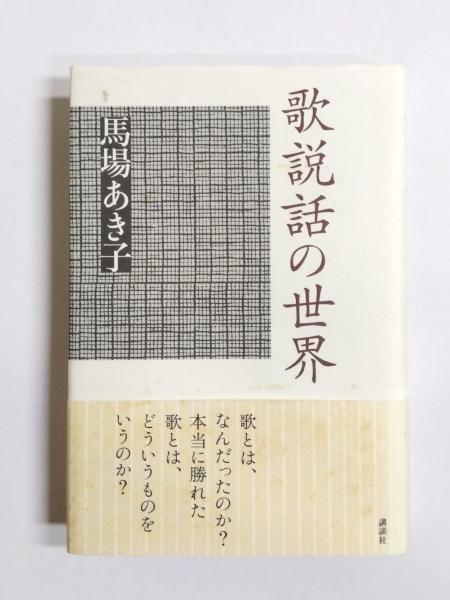 歌説話の世界
馬場あき子
歌とは、
なんだったのか?
本当に勝れた
歌とは、
どういうものを
いうのか?
講談社